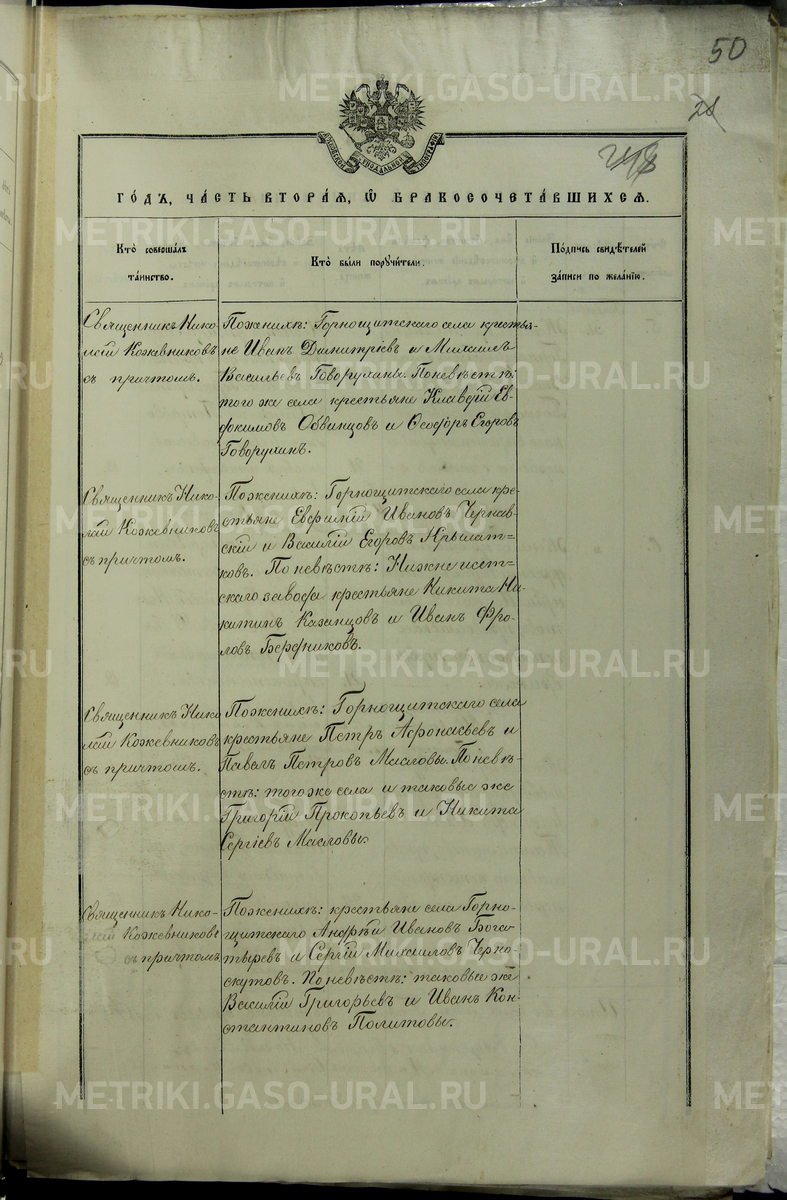 50
28
МОСКОВСКОЙ СѴНОДАЛЬНОЙ ТИПОГРАФІИ
ГОДЪ, ЧАСТЬ ВТОРАЯ, Ѿ БРАКОСОЧЕТАВШИХСЯ.
Кто совершалъ
таинство.
Кто были поручители.
Подпись свидѣтелей
записи по желанію.
Священникъ Нико-
лай Кожевниковъ
съ причтомъ.
По женихѣ: Горнощитскаго села крестья-
не Иванъ Димитріевъ и Михаилъ
Васильевъ Говорухины. По невѣстѣ:
того же села крестьяне Клавдій Ев-
фимовъ Обвинцовъ и Ѳеодоръ Егоровъ
Говорухинъ.
Священникъ Нико-
лай Кожевниковъ
съ причтомъ.
По женихѣ: Горнощитскаго села кре-
стьяне Евфимій Ивановъ Черняв-
скій и Василій Егоровъ Крылат-
ковъ. По невѣстѣ: Нижне исет-
скаго завода крестьяне Никита Ни-
китинъ Казанцовъ и Иванъ Фро-
ловъ Бердниковъ.
Священникъ Нико
лай Кожевниковъ
съ причтомъ.
По женихѣ: Горнощитскаго села
крестьяне Петръ Афонасьевъ и
Павелъ Петровъ Масловы. По невѣ-
стѣ: того же села и таковые же
Григорій Прокопьевъ и Никита
Сергіевъ Масловы.
Священникъ Нико-
лай Кожевниковъ
съ причтомъ
По женихѣ: крестьяне села Горно-
щитскаго Андрей Ивановъ Бога-
тыревъ и Сергій Михаиловъ Черно-
скутовъ. По невѣстѣ: таковые же
Василій Григорьевъ и Иванъ Кон-
стантиновъ Политовы.
METRIKI.GASO-URAL.RU